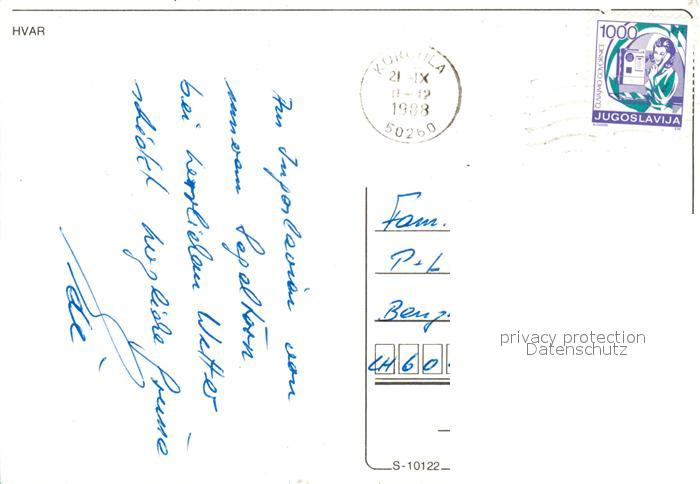 HVAR
Aus Jugoslavien von
unserem Segeltörn
bei herrlichem Wetter
schickt herzliche Grüsse
KORČULA
21-IX
11-12
1988
50260
1000
JUGOSLAVIJA
Fam.
P+L
CH 60
S-10122
privacy protection
Datenschutz